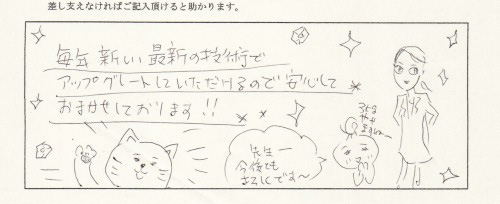 差し支えなければご記入頂けると助かります。
毎年 新しい 最新の技術で
アップグレートしていただけるので 安心して
おまかせしております!!
先生ー
今後とも
よろしくです〜